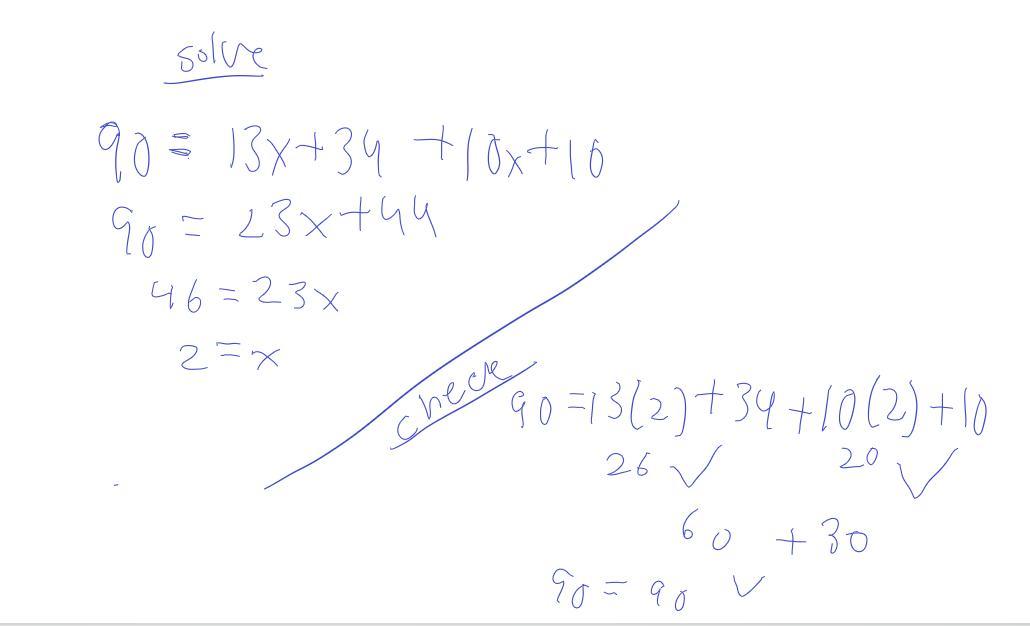 solve
90 = 13x+34 +10x+10
90 = 23x+44
46 = 23x
2 = x
check
90 = 13(2)+34+10(2)+10
26 ✓ 20 ✓
60 + 30
90 = 90 ✓